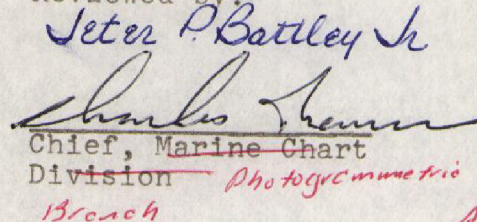 Reviewed by:
Jeter P. Battley Jr
Charles
Chief, Marine Chart
Division Photogrammetric
Branch